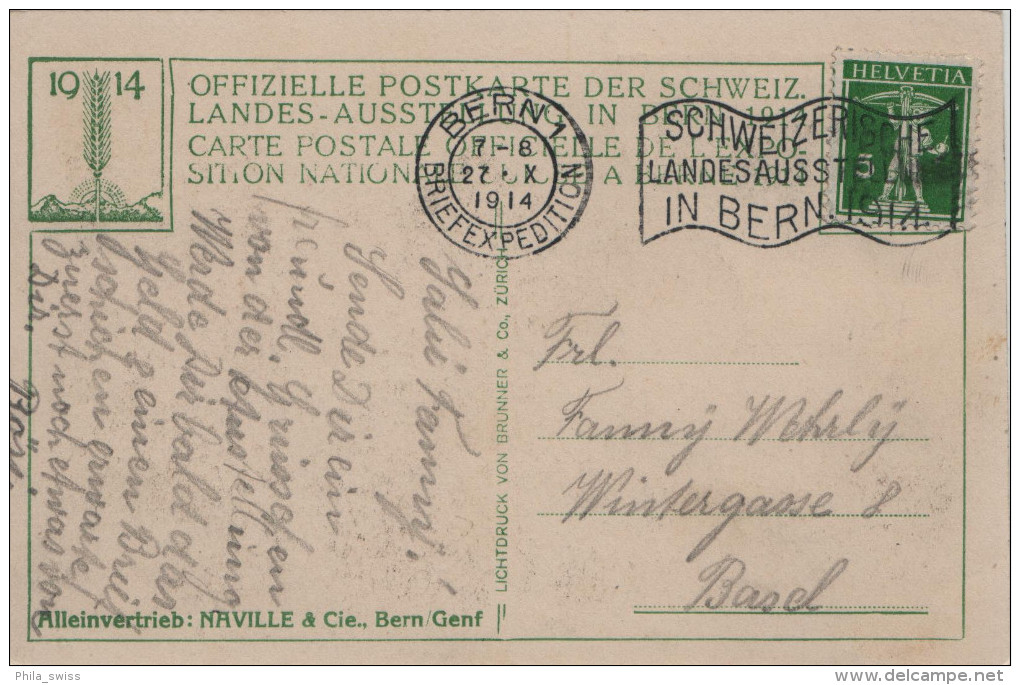 19 14
OFFIZIELLE POSTKARTE DER SCHWEIZ.
LANDES-AUSSTELLUNG IN BERN 1914
CARTE POSTALE OFFICIELLE DE L'EXPO-
SITION NATIONALE SUISSE A BERNE 1914
BERN 1
7-8
27. X
1914
BRIEFEXPEDITION
SCHWEIZERISCHE
LANDESAUSSTELLUNG
IN BERN. 1914.
HELVETIA
5
Salü Fanny!
Sende Dir ein
freundl. Grüsschen
von der Ausstellung
Werde Dir bald den
Geld & einen Brief
schicken erwarte
zuerst noch etwas von
Dir.
LICHTDRUCK VON BRUNNER & Co., ZÜRICH
Frl.
Fanny Wehrly
Wintergasse 8
Basel
Alleinvertrieb: NAVILLE & Cie., Bern/Genf
Phila_swiss
delcampe.net